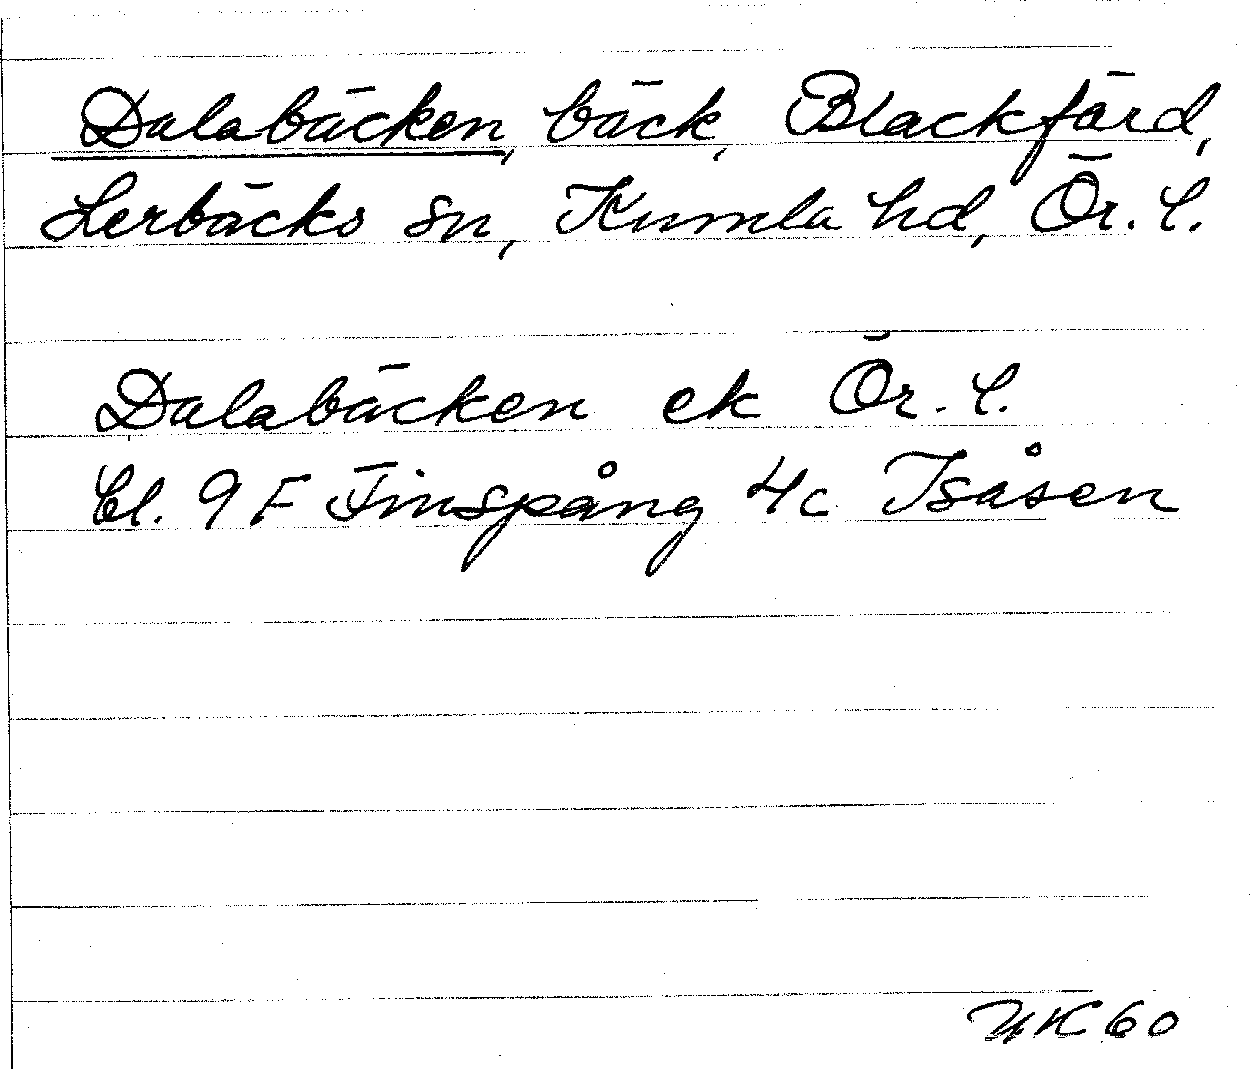 Dalabäcken, bäck, Blackfärd,
Lerbäcks sn, Kumla hd, Ör. l.
Dalabäcken ek Ör. l.
bl. 9 F Finspång 4c Isåsen
UK 60